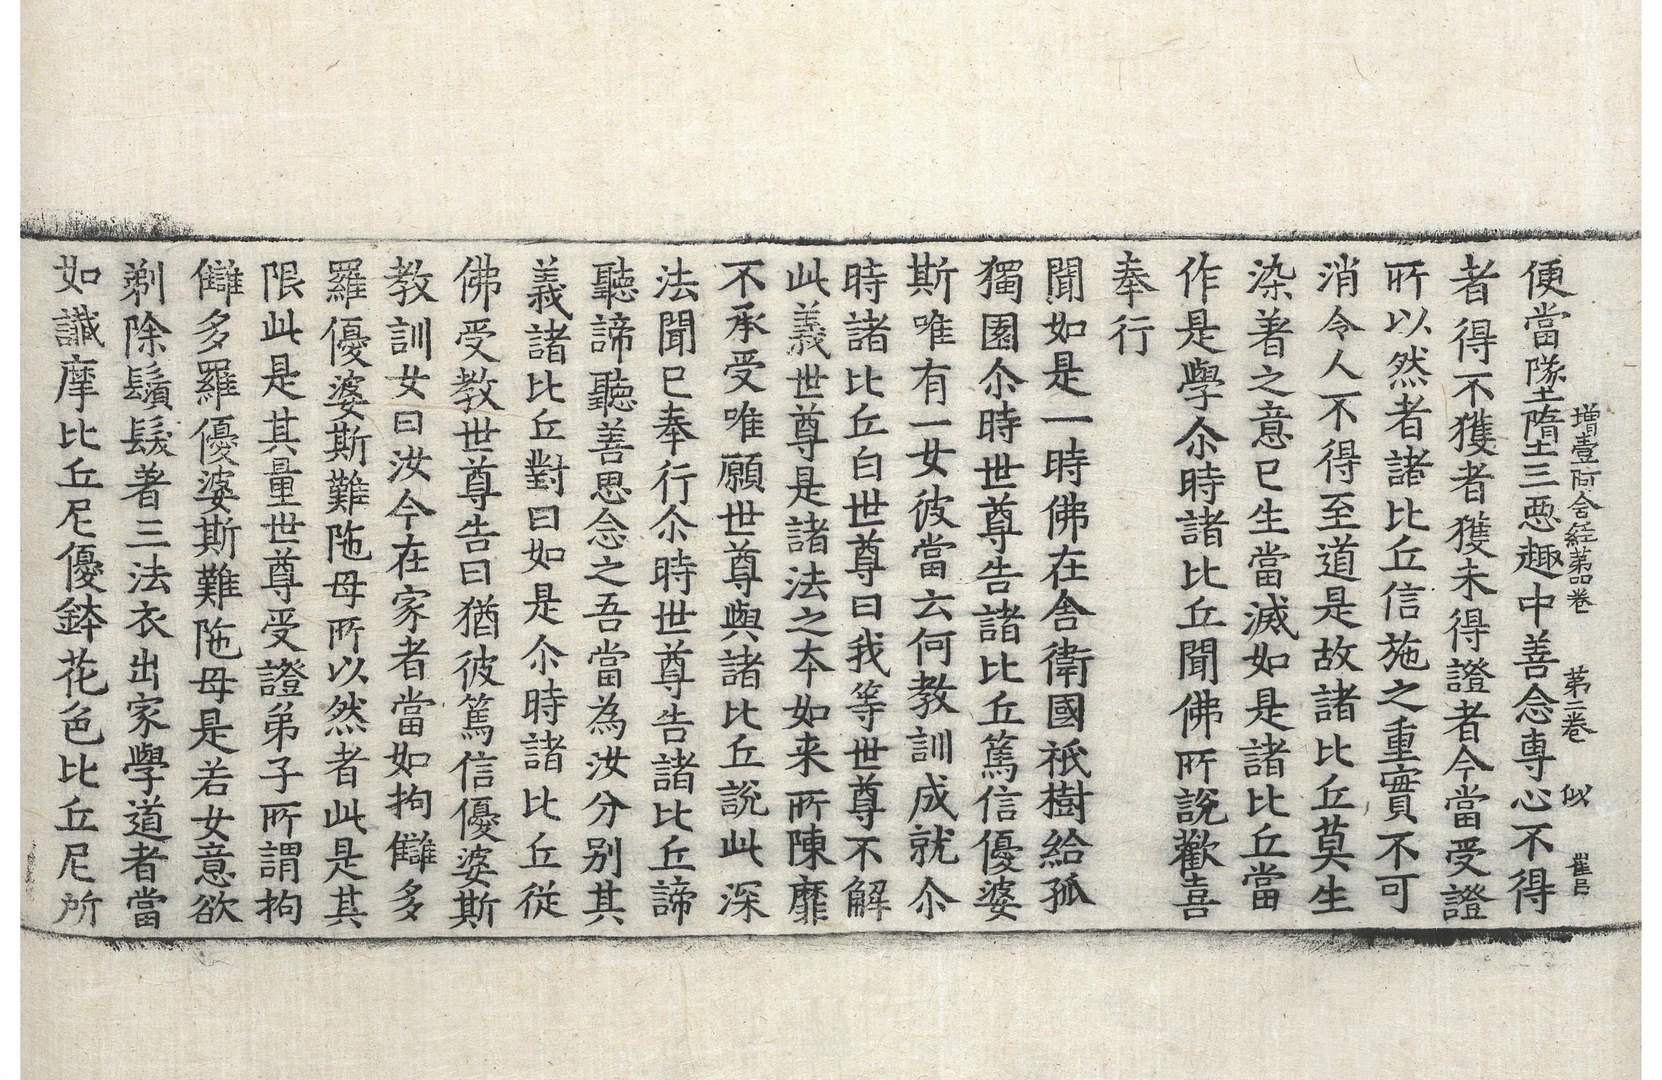 增壹阿含經第四卷 第二卷 似 崔呂
便當墜墮三惡趣中善念專心不得
者得不獲者獲未得證者今當受證
所以然者諸比丘信施之重實不可
消令人不得至道是故諸比丘莫生
染著之意已生當滅如是諸比丘當
作是學尒時諸比丘聞佛所說歡喜
奉行
聞如是一時佛在舍衛國祇樹給孤
獨園尒時世尊告諸比丘篤信優婆
斯唯有一女彼當云何教訓成就尒
時諸比丘白世尊曰我等世尊不解
此義世尊是諸法之本如来所陳靡
不承受唯願世尊與諸比丘說此深
法聞已奉行尒時世尊告諸比丘諦
聽諦聽善思念之吾當為汝分別其
義諸比丘對曰如是尒時諸比丘従
佛受教世尊告曰猶彼篤信優婆斯
教訓女曰汝今在家者當如拘讎多
羅優婆斯難陁母所以然者此是其
限此是其量世尊受證弟子所謂拘
讎多羅優婆斯難陁母是若女意欲
剃除鬚髮著三法衣出家學道者當
如讖摩比丘尼優鉢花色比丘尼所